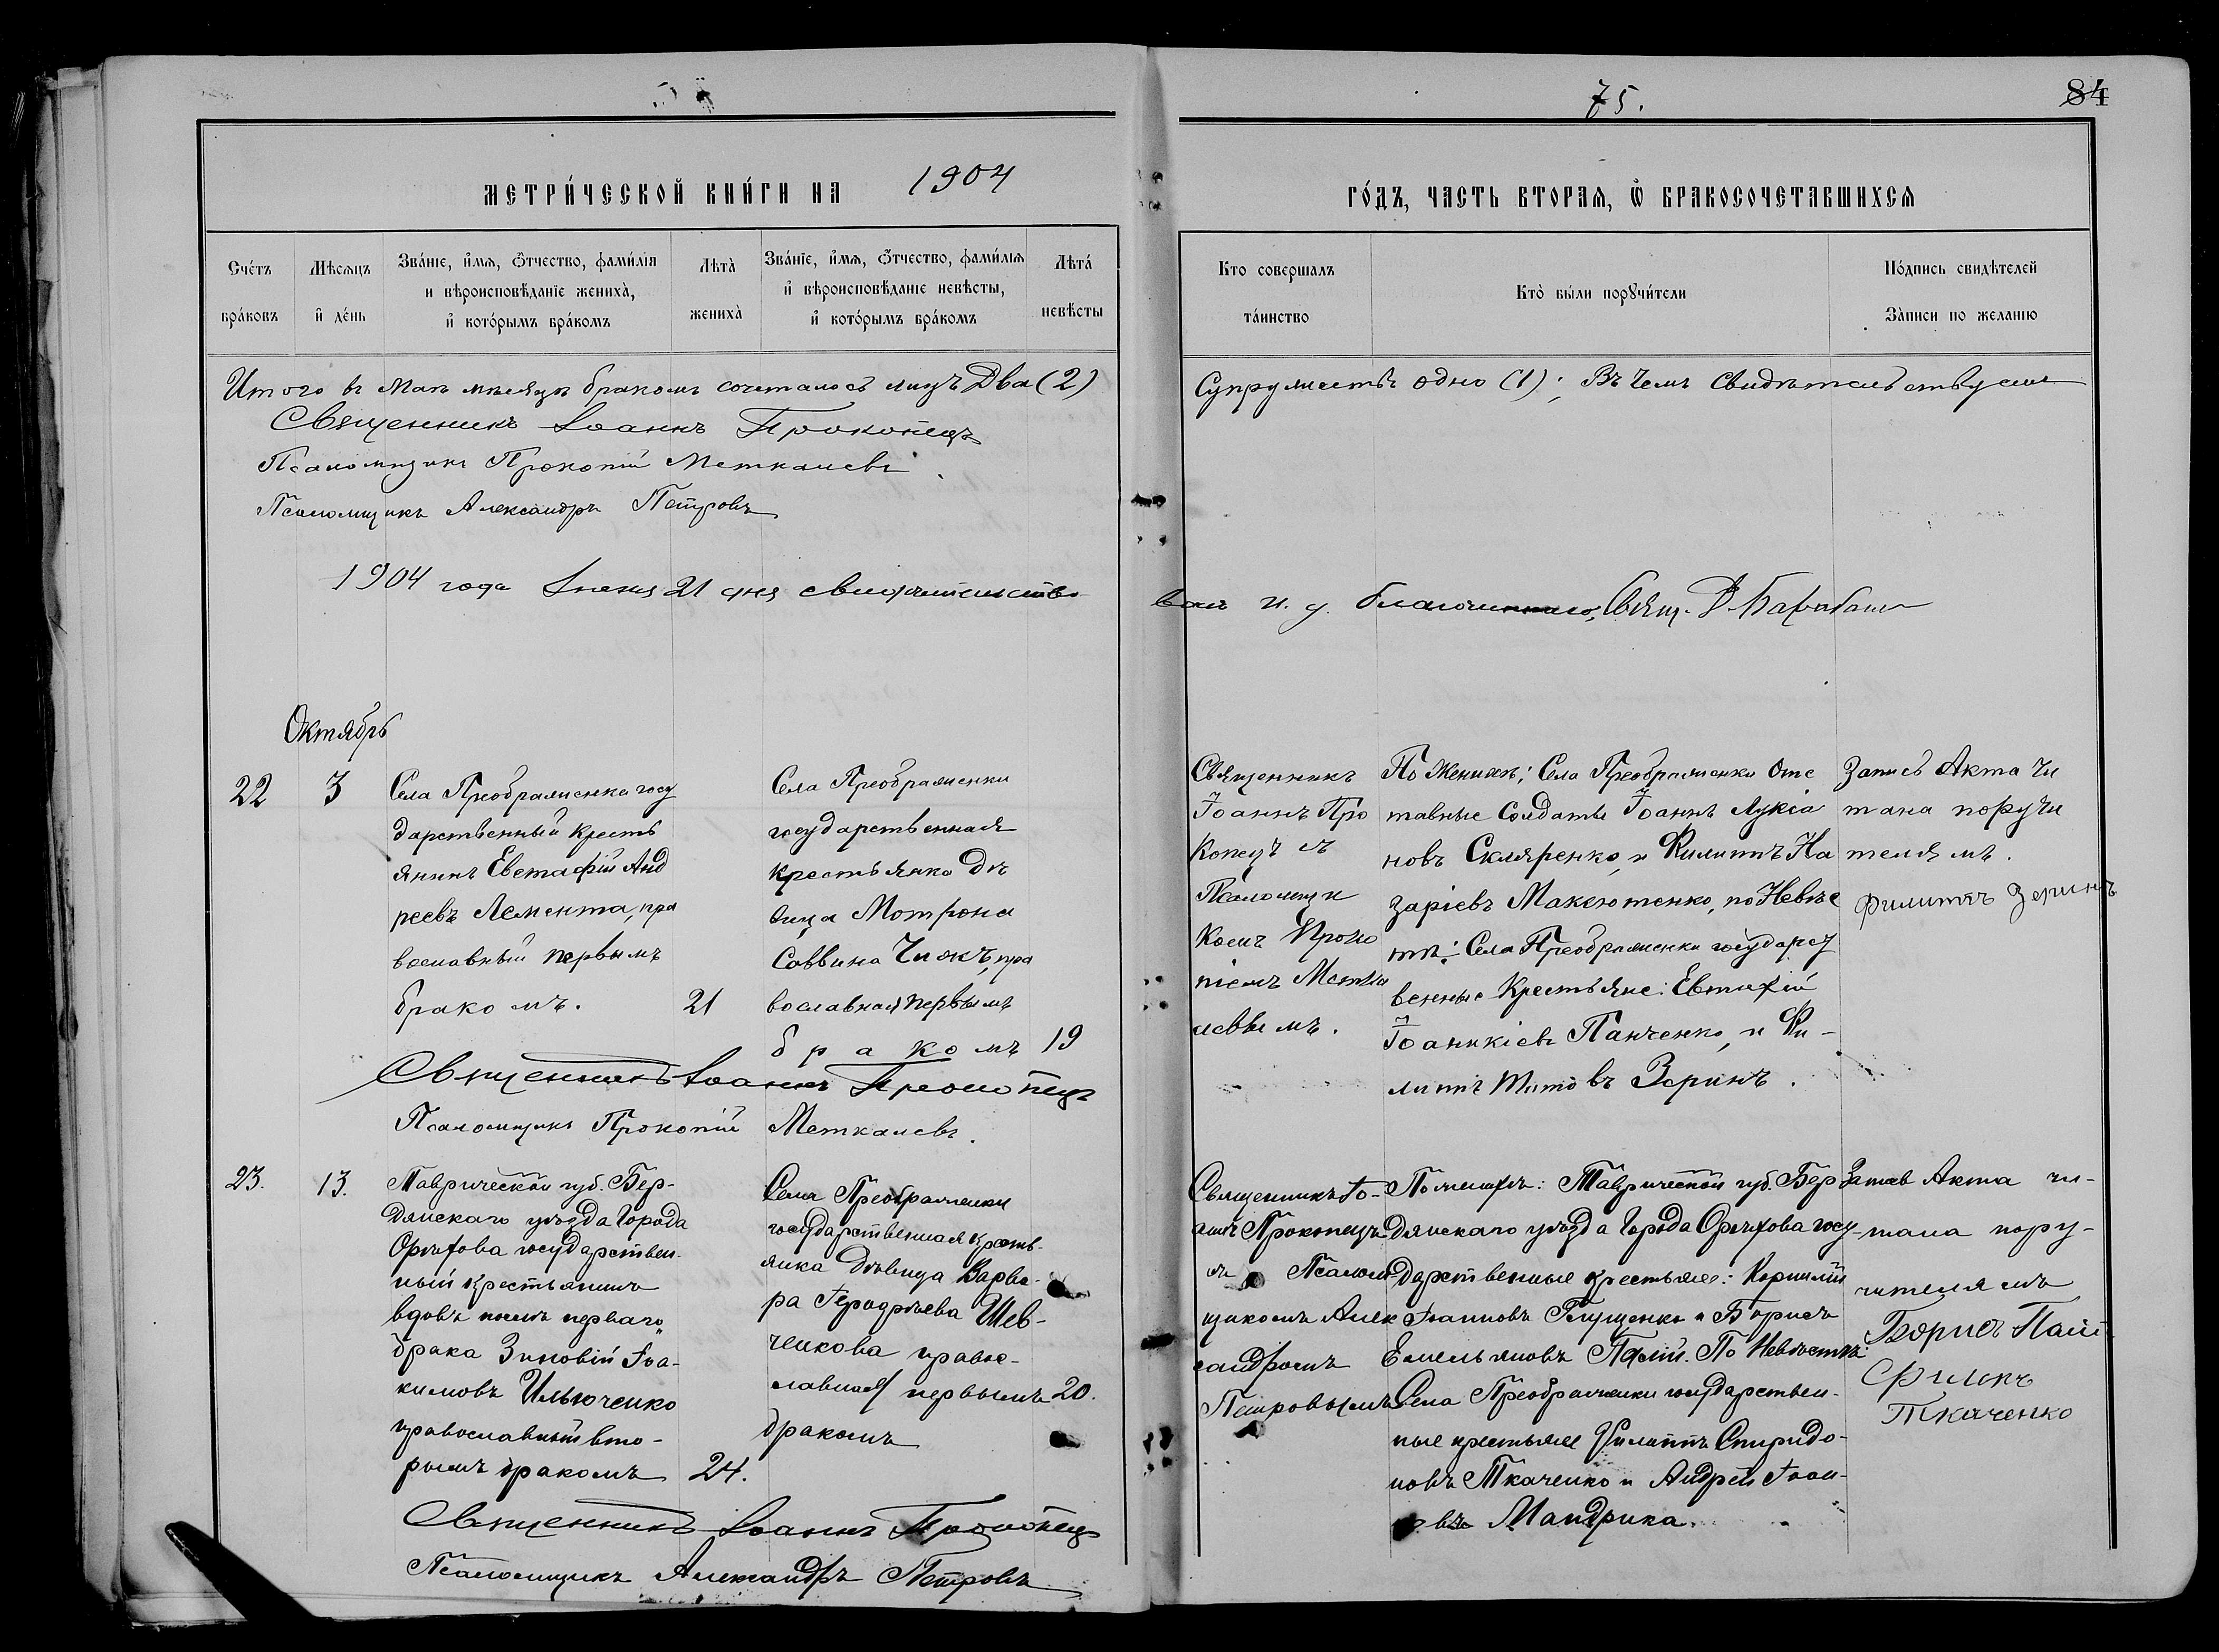 75.
84
МЕТРИ́ЧЕСКОЙ КНИ́ГИ НА 1904
ГО́ДЪ, ЧАСТЬ ВТОРАЯ, Ѿ БРАКОСОЧЕТАВШИХСЯ
Сче́тъ бра́ковъ
Мѣсяцъ и де́нь
Зва́ніе, и́мя, ѻ́тчество, фами́лія и вѣроисповѣ́даніе жениха̀, и́ кото́рымъ бра́комъ
Лѣта̀ жениха̀
Зва́ніе, и́мя, ѻ́тчество, фами́лія и́ вѣроисповѣ́даніе невѣ́сты, и́ кото́рымъ бра́комъ
Лѣта́ невѣ́сты
Кто совершалъ та́инство
Кто̀ бы́ли порꙋчи́тели
По́дпись свидѣ́телей За̀писи по желанію
Итого въ Маѣ мѣсяцѣ бракомъ сочеталось лицъ Два (2)
Супружествъ одно (1); Въ чемъ свидѣтельствуемъ
Священникъ Іоаннъ Прокопецъ
Псаломщикъ Прокопій Меткалевъ
Псаломщикъ Александръ Петровъ
1904 года Іюня 21 дня свидѣтельство
валъ и. д. благочиннаго, Свящ.
Октябрь
22
3
Села Преображенка госу
дарственный кресть
янинъ Евстафій Анд
реевъ Лемента, пра
вославный первымъ
бракомъ.
21
Села Преображенки
государственная
крестьянка дѣ
вица Мотрона
Саввина Чижъ, пра
вославная первымъ
бракомъ
19
Священникъ
Іоаннъ Про
копецъ съ
Псаломщи
комъ Проко
піемъ Метка
левымъ.
По Женихѣ: Села Преображенки Отс
тавные Солдаты Іоаннъ Лукіа
новъ Скляренко, и Филиппъ На
заріевъ Максютенко, по Невѣс
тѣ: Села Преображенки государст
венные Крестьяне: Евтихій
Іоаникіевъ Панченко, и Фи-
липпъ Титовъ Зеринъ.
Запись Акта чи
тана поручи
телямъ.
Филиппъ Зеринъ
Священникъ Іоаннъ Прокопецъ
Псаломщикъ Прокопій Меткалевъ.
23.
13.
Таврической губ. Бер-
дянскаго уѣзда Города
Орѣхова государствен-
ный крестьянинъ
вдовъ послѣ перваго
брака Зиновій Іоа-
кимовъ Ильюченко
православный вто-
рымъ бракомъ
24.
Села Преображенки
государственная кресть-
янка дѣвица Варва-
ра Шев-
ченкова правос-
лавная первымъ
бракомъ
20.
Священникъ Іо-
аннъ Прокопецъ
съ Псалом-
щикомъ Алек
сандромъ
Петровымъ
По женихѣ: Таврической губ. Бер
дянскаго уѣзда Города Орѣхова госу-
дарственные крестьяне: Корнилій
Іоанновъ Глущенко и Борисъ
Емельяновъ Палій. По Невѣстѣ:
Села Преображенки государствен-
ные крестьяне Филиппъ Спиридо-
новъ Ткаченко и Андрей Іоан-
овъ Мандрика.
Запись Акта чи-
тана пору-
чителямъ
Борисъ Палій
Филипъ
Ткаченко
Священникъ Іоаннъ Прокопецъ
Псаломщикъ Александръ Петровъ